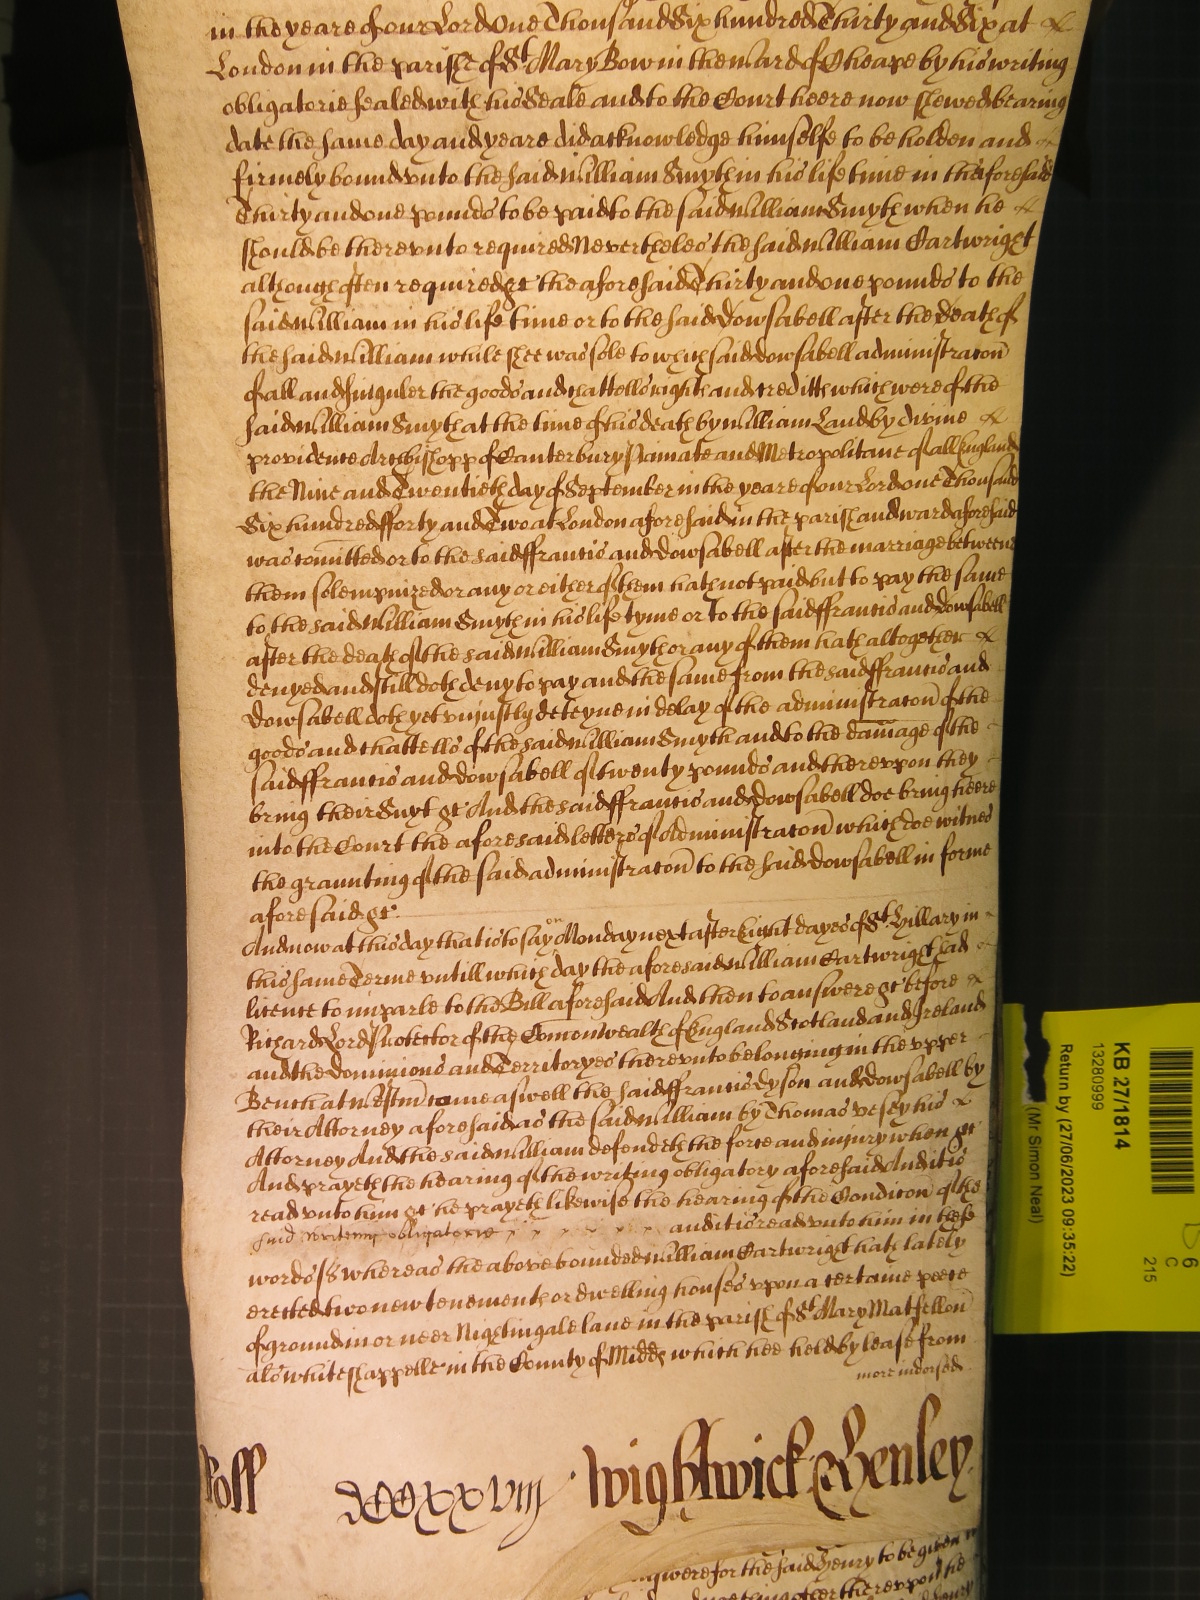 in the yeare of our Lord One Thousand Six hundred Thirty and Six at
London in the parish of St Mary Bow in the ward of Cheape by his writing
obligatorie sealed with his Seale and to the Court heere now shewed bearing
date the same day and yeare did acknowledge himselfe to be holden and
firmely bound vnto the said William Smyth in his life time in the aforesaid
Thirty and one pounds to be paid to the said William Smyth when he
should be therevnto required Nevertheles the said William Cartwright
although often required &c the aforesaid Thirty and one pounds to the
said William in his life time or to the said Dowsabell after the death of
the said William while shee was sole to which said dowsabell administracon
of all and singuler the goods and chattells rights and creditts which were of the
said William Smyth at the time of his death by William Laud by divine
providence Archbishopp of Canterbury Primate and Metropolitane of all England
the Nine and Twentieth day of September in the yeare of our Lord one Thousand
Six hundred fforty and Two at London aforesaid in the parish and ward aforesaid
was comitted or to the said ffrancis and dowsabell after the marriage betweene
them solempnized or any or either of them hath not paid but to pay the same
to the said William Smyth in his life tyme or to the said ffrancis and dowsabell
after the death of the said William Smyth or any of them hath altogether
denyed and still doth deny to pay and the same from the said ffrancis and
Dowsabell doth yet vniustly deteyne in delay of the administracon of the
goods and chattells of the said William Smyth and to the damage of the
said ffrancis and dowsabell of twenty pounds and therevpon they
bring their Suyt &c And the said ffrancis and dowsabell doe bring heere
into the Court the aforesaid letters of Administracon which doe witnes
the graunting of the said administracon to the said dowsabell in forme
aforesaid &c
And now at this day that is to say on Monday next after Eight dayes of St Hillary in
this same Terme vntill which day the aforesaid William Cartwright had
licence to imparle to the Bill aforesaid And then to answere &c before
Richard Lord Protector of the Comonwealth of England Scotland and Ireland
and the Dominions and Territoryes therevnto belonging in the vpper
Bench at Westm came aswell the said ffrancis Dyson and dowsabell by
their Attorney aforesaid as the said William by Thomas Vesey his
Attorney And the said William defendeth the force and iniury when &c
And prayeth the hearing of the writing obligatory aforesaid And it is
read vnto him &c he prayeth likewise the hearing of the Condicon of the
said writing obligatorie and it is read vnto him in these
words ss whereas the above bounded William Cartwright hath lately
erected two new tenements or dwelling houses vpon a certaine peece
of ground in or neer Nightingale lane in the parish of St Mary Matfellon
als whitechappelle in the County of Midds which hee held by lease from
more indorsed
Roll
Wightwick & Henley
answere for the said Henry to be given
KB 27/1814
13280999
Return by (27/06/2023 09:35:22)
(Mr Simon Neal)
6
C
215